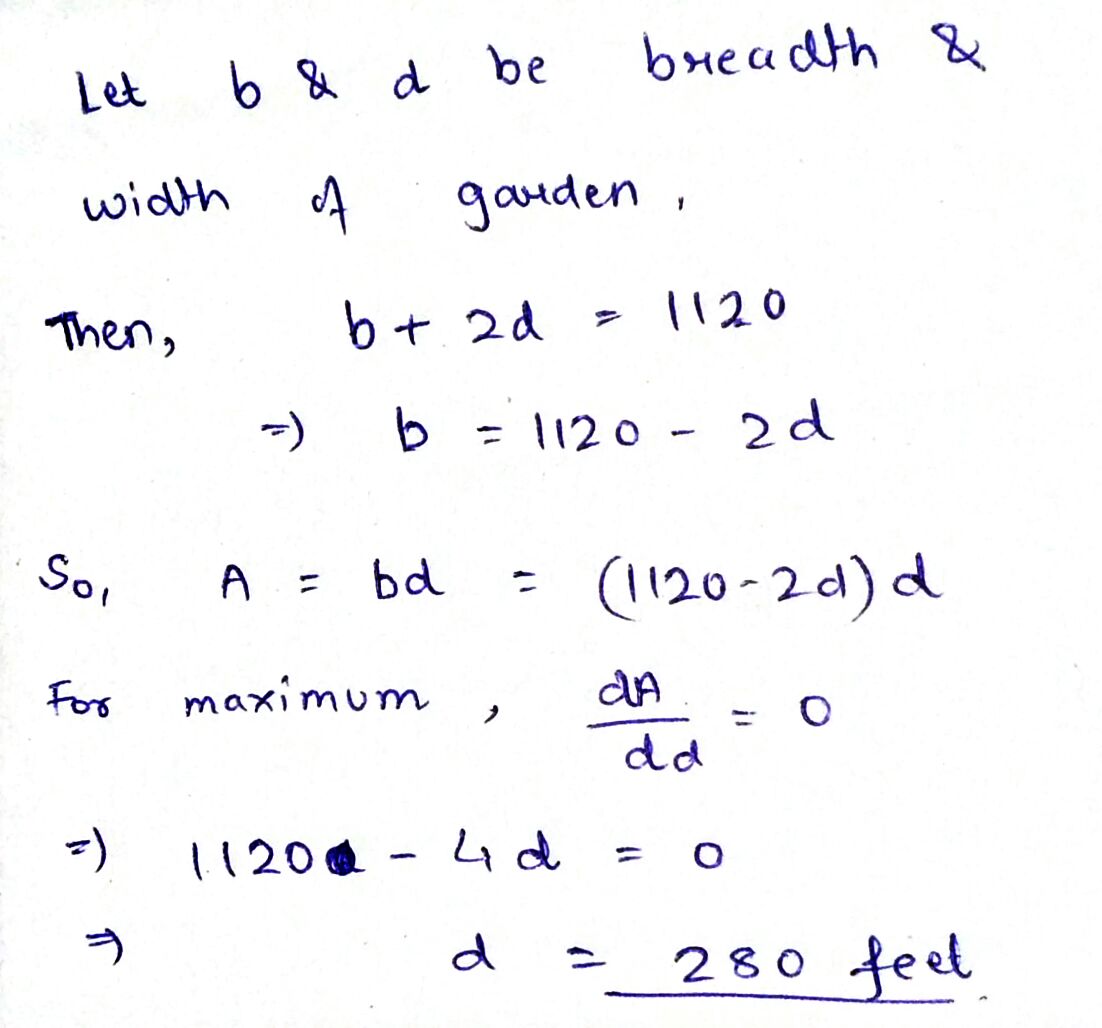 Let b & d be breadth &
width of garden.
Then, b + 2d = 1120
=) b = 1120 - 2d
So, A = bd = (1120-2d) d
For maximum, dA/dd = 0
=) 1120 - 4d = 0
=) d = 280 feet.